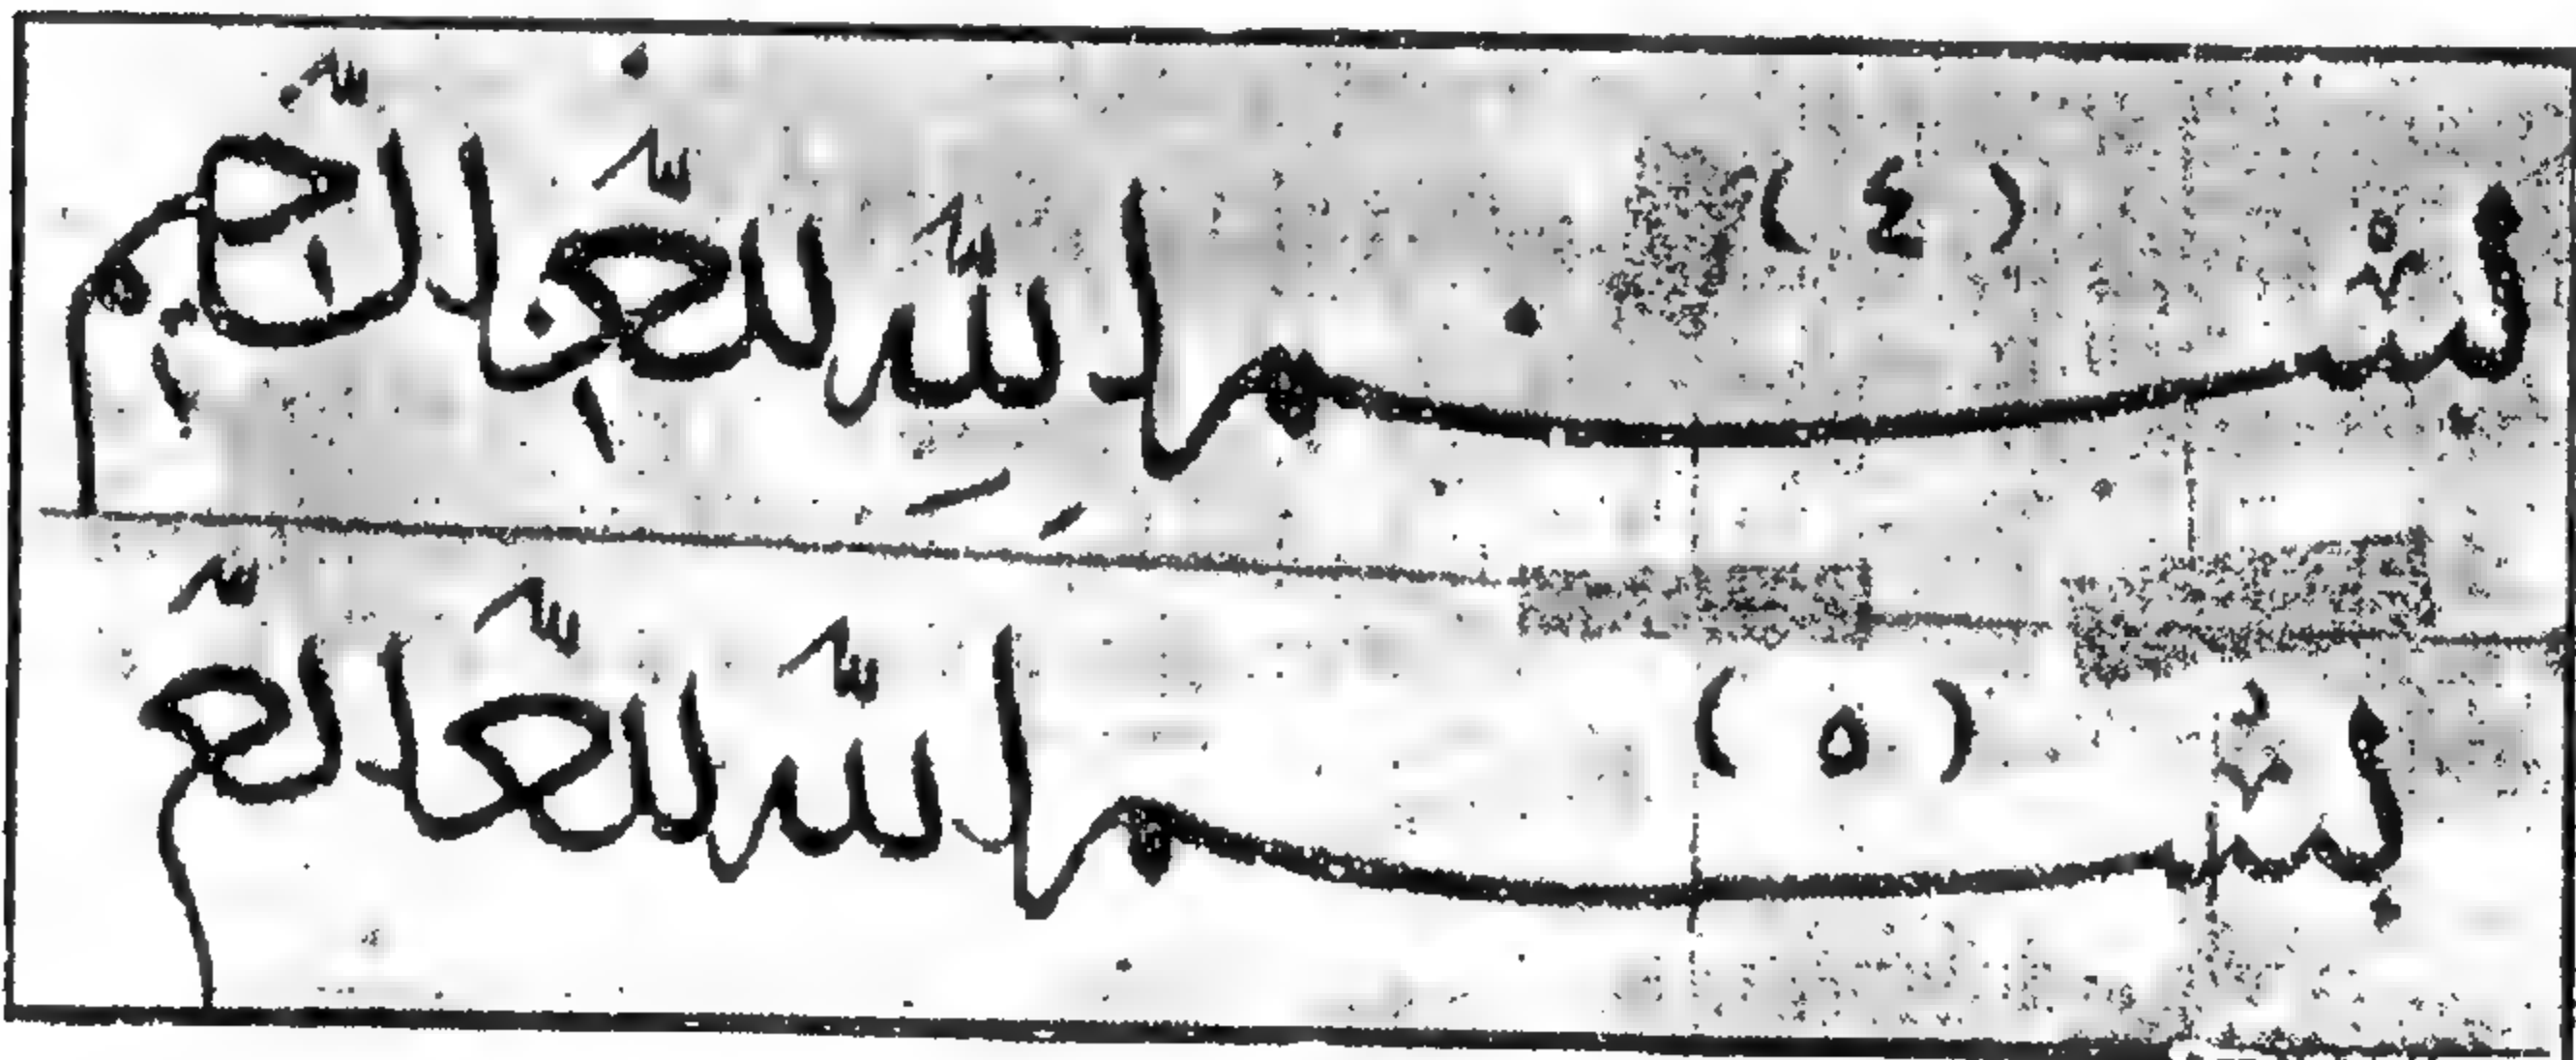 (٤)
بسم الله الرحمن الرحيم
(٥)
بسم الله الرحمن الرحيم